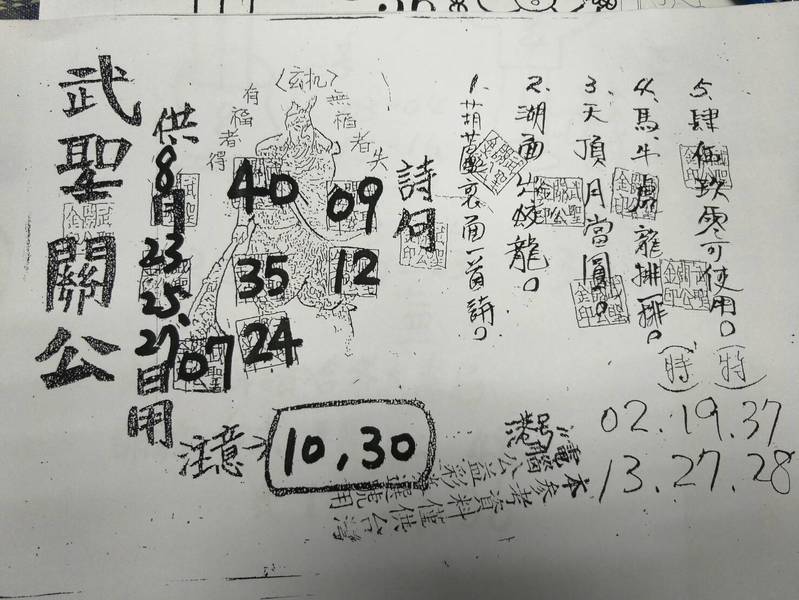 武聖關公
供8月23.25.27日用
(玄机)
有福者得
無福者失
40
09
35
12
07
24
詩句
1.葫蘆裏面一首詩。
2.湖面出蛟龍。
3.天頂月當圓。
4.馬牛虎龍排一排。
5.肆伍玖零可使用。
(特)
(特)
注意→
10,30
02.19.37
13.27.28
本參考資料僅供台灣
電腦公益彩券選號用